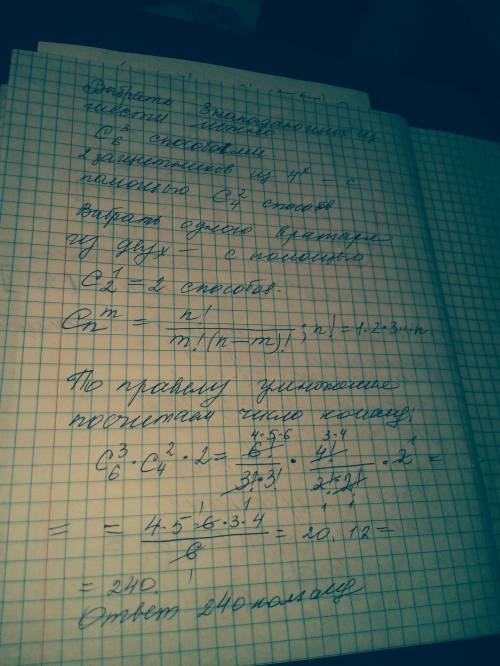 Выбрать 3 нападающих из
шести можно
C₆³ способами
2 защитников из 4ˣ – с
помощью C₄² способов
Выбрать одного вратаря
из двух – с помощью
C₂¹ = 2 способов.
Cₙᵐ = n! / m!(n–m)! ; n! = 1·2·3···n
По правилу умножения
посчитаем число команд:
4·5·6 3·4 1
C₆³ · C₄² · 2 = 6! / 3!·3! · 4! / 2!·2! · 2 =
= = 4·5·6·3·4 / 6 = 20.12 =
= 240.
Ответ 240 команд